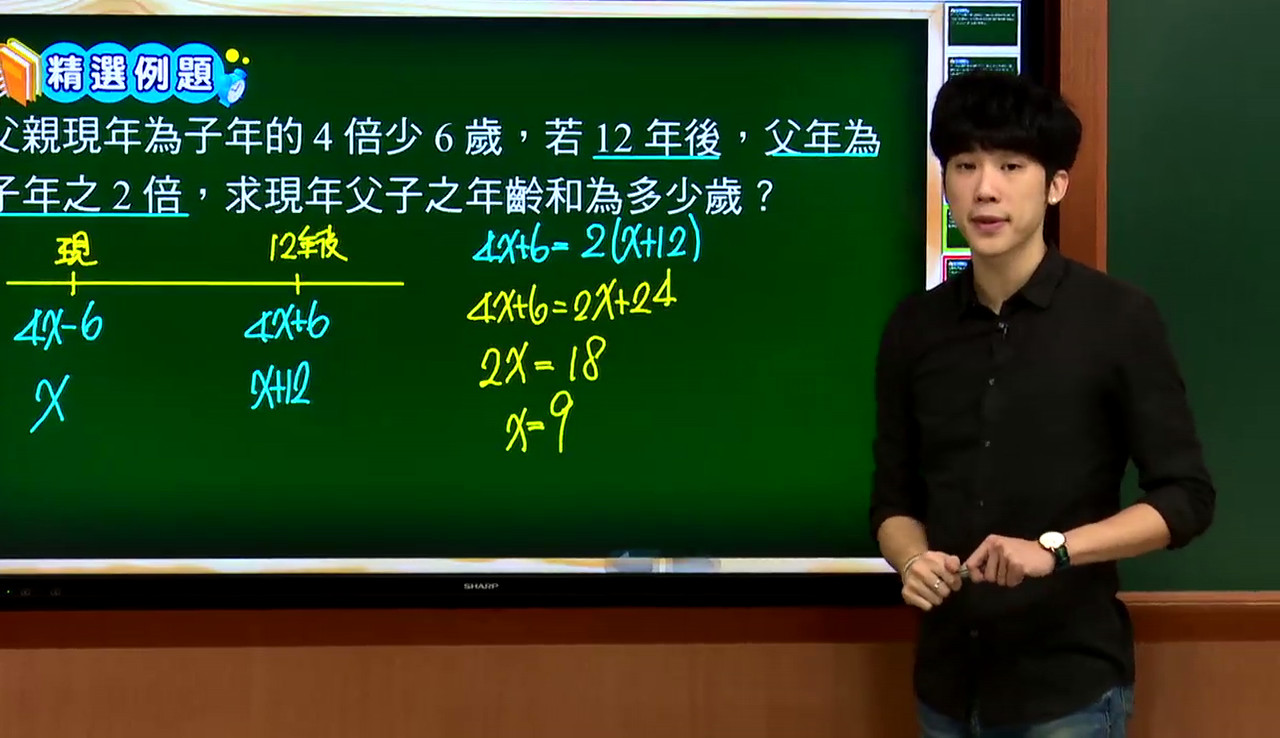 精選例題
父親現年為子年的 4 倍少 6 歲，若 12 年後，父年為
子年之 2 倍，求現年父子之年齡和為多少歲？
現 12年後
4x-6 4x+6
x x+12
4x+6= 2(x+12)
4x+6=2x+24
2x= 18
x=9
SHARP